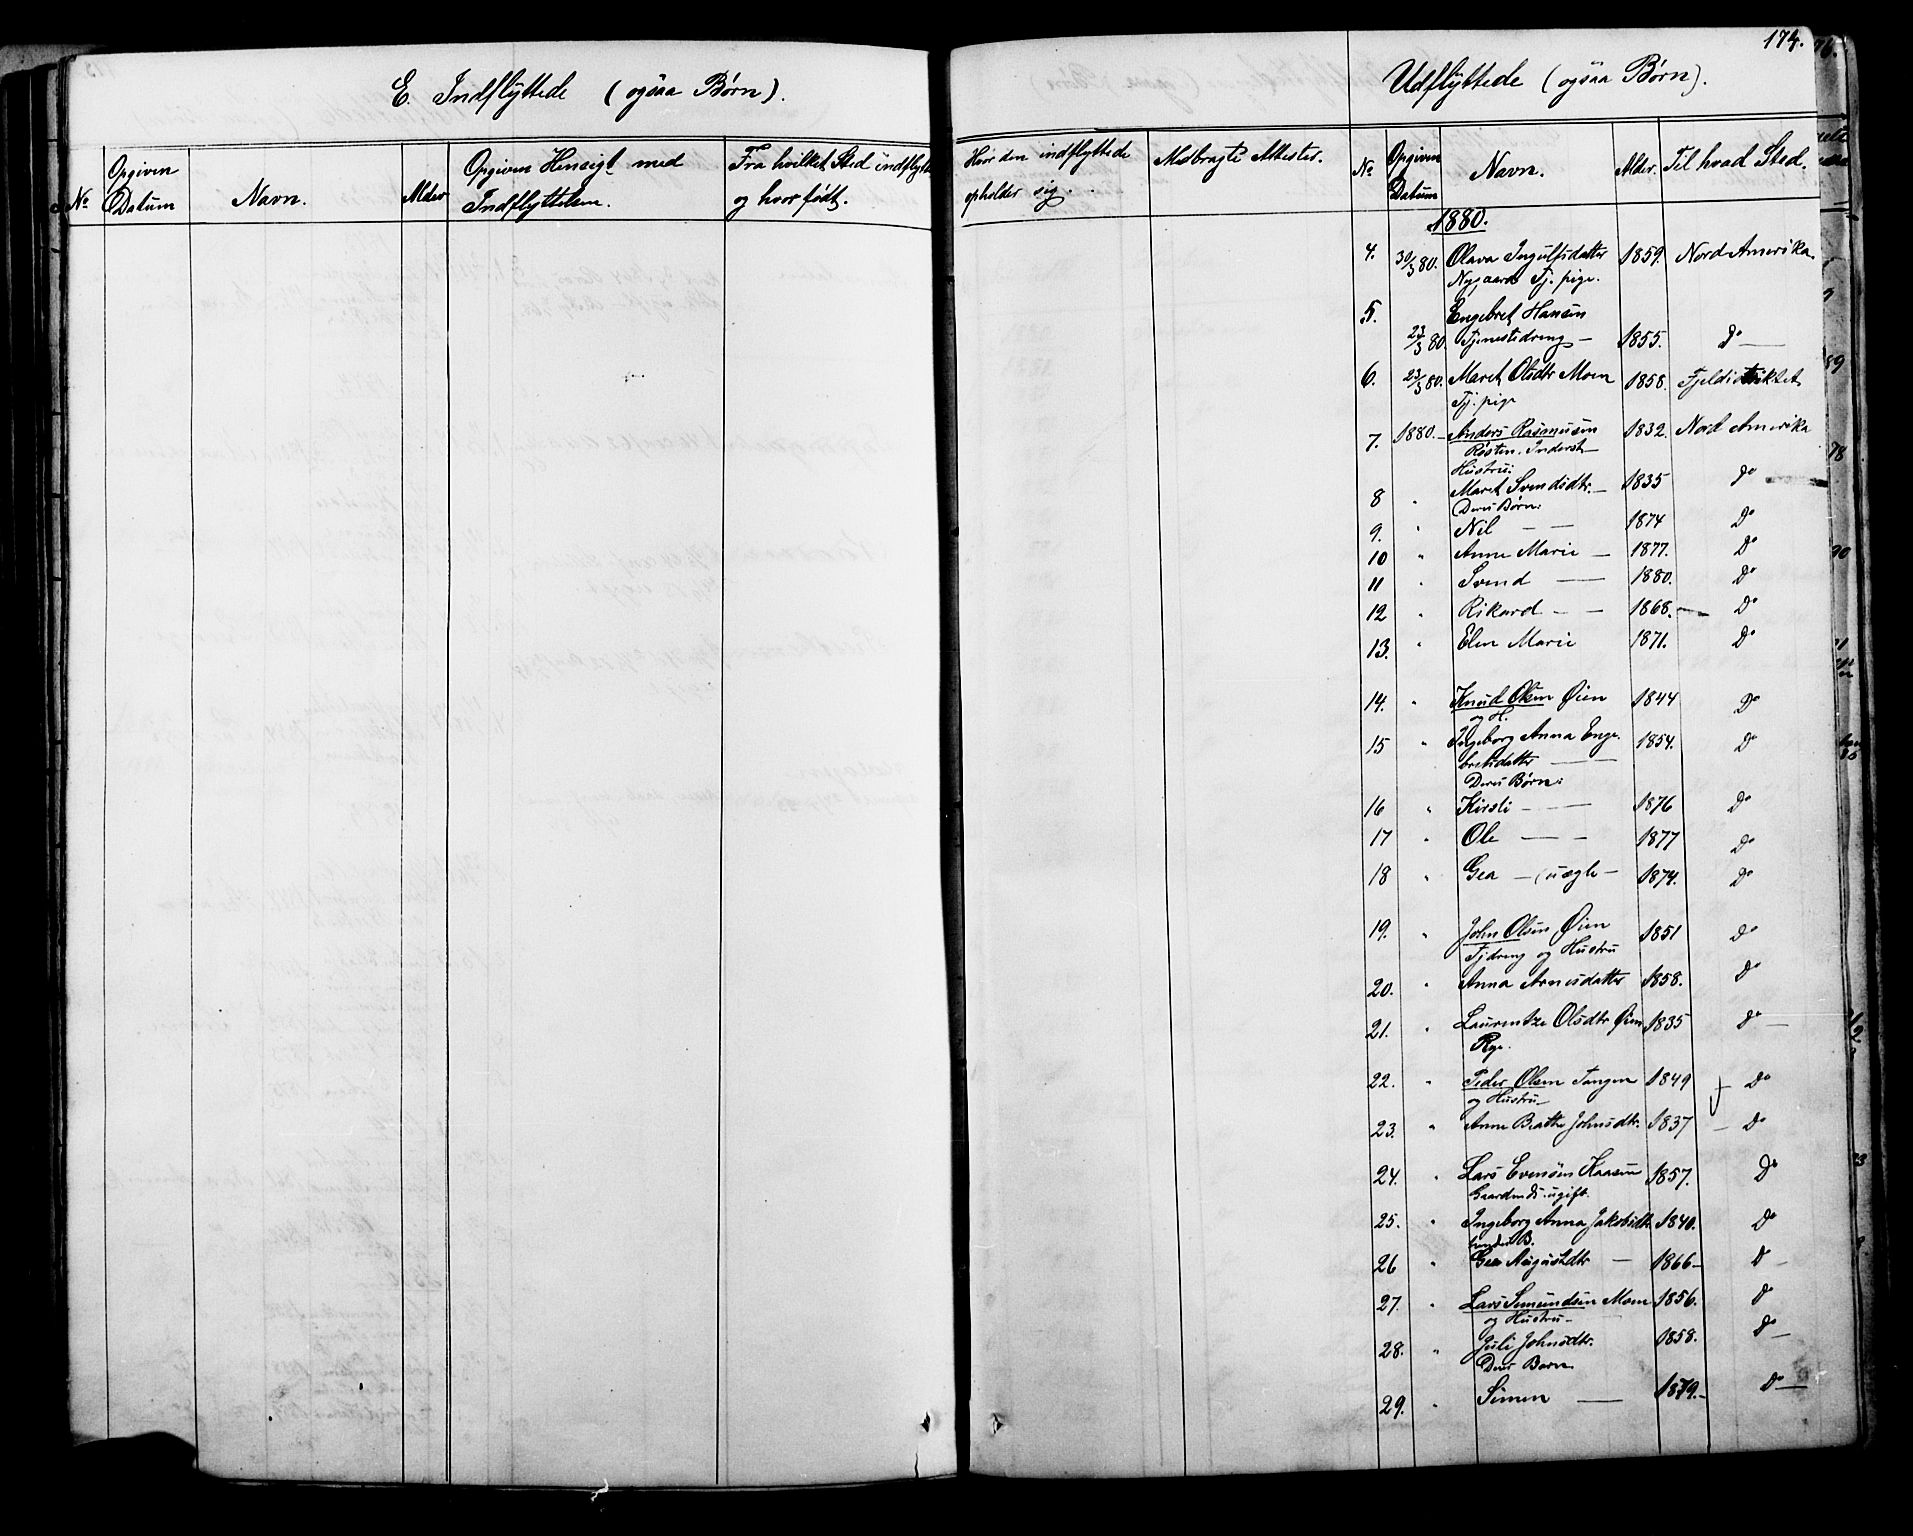 174.
E. Indflyttede (ogsaa Børn).
Udflyttede (ogsaa Børn).
No Opgiven Datum Navn. Alder Opgiven Hensigt med Indflyttelsen. Fra hvilket Sted indflytt og hvor født. Hvor den indflyttede opholder sig. Medbragte Attester. No Opgiven Datum Navn. Alder. Til hvad Sted.
1880.
4. 30/3 80. Olava Ingulfsdatter 1859. Nord Amerika.
Nygaard Tj. pige.
5. Engebret Hansen
23/3 80. Tjenestedreng — 1855. Do —
6. 23/3 80. Maret Olsdtr Moen 1858. Fjeldistriktet
Tj. pige
7. 1880. Anders Rasmusen 1832. Nord Amerika
Røsten. Inderst —
Hustru:
8 " Maret Svendsdtr. — 1835 Do
Deres Børn:
9. " Nil — — 1874 Do
10 " Anne Marie — 1877. Do
11 " Svend — 1880. Do
12 " Rikard — — 1868. — Do
13. " Elen Marie 1871. Do
14. " Knud Olsen Øien 1844 Do
og H.
15 " Ingeborg Anna Enge- 1854. Do
bretsdatter —
Deres Børn:
16 " Kirsti — 1876 Do
17 " Ole — — 1877 Do
18 " Gea — (uægte — 1874. Do
19. " John Olsen Øien 1851 Do
Tjdreng og Hustru
20. " Anna Arnesdatter 1858. Do
21. " Laurentze Olsdtr Øien 1835 Do —
Pige.
22. " Peder Olsen Tangen 1849 Do
og Hustru —
23. " Anne Beathe Johnsdtr. 1837 — Do
24. " Lars Evensen Kaasen 1857. Do
Gaardmds. ugift.
25. " Ingeborg Anna Jakobsdtr 1840. Do
hendes B.
26 " Gea Augustdtr — 1866 — D —
27. " Lars Simundsen Moen 1856. D
og Hustru —
28. " Juli Johnsdtr. 1858. Do —
Deres Barn
29. " Simen — 1879. — Do —